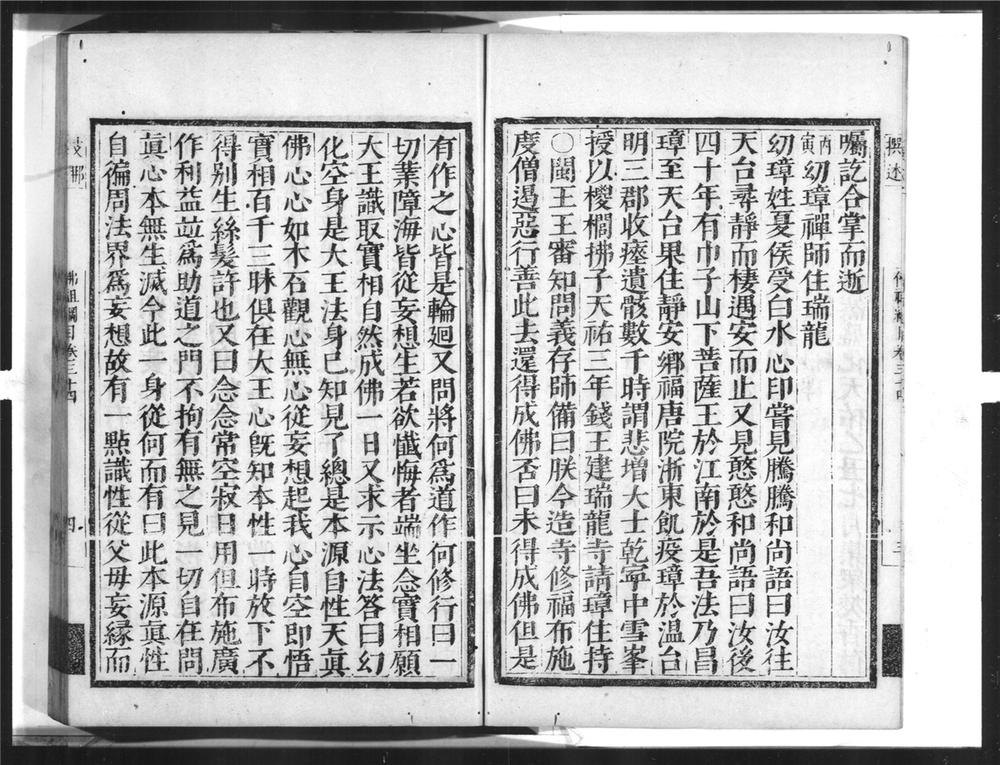 囑訖合掌而逝
丙寅幼璋禪師住瑞龍
幼璋姓夏侯受白水心印嘗見騰騰和尚語曰汝往
天台尋靜而棲遇安而止又見憨憨和尚語曰汝後
四十年有巾子山下菩薩王於江南於是吾法乃昌
璋至天台果住靜安鄉福唐院浙東飢疫璋於溫台
明三郡收瘞遺骸數千時謂悲增大士乾寧中雪峯
授以椶櫚拂子天祐三年錢王建瑞龍寺請璋住持
〇閩王王審知問義存師備曰朕今造寺修福布施
度僧遏惡行善此去還得成佛否曰未得成佛但是
有作之心皆是輪廻又問將何爲道作何修行曰一
切業障海皆從妄想生若欲懺悔者端坐念實相願
大王識取實相自然成佛一日又求示心法答曰幻
化空身是大王法身已知見了總是本源自性天眞
佛心心如木石觀心無心從妄想起我心自空即悟
實相百千三昧俱在大王心旣知本性一時放下不
得別生絲髮許也又曰念念常空寂日用但布施廣
作利益竝爲助道之門不拘有無之見一切自在問
眞心本無生滅今此一身從何而有曰此本源眞性
自徧周法界爲妄想故有一點識性從父母妄緣而
撰述
佛祖綱目卷三十四
三
佛祖綱目卷三十四
四